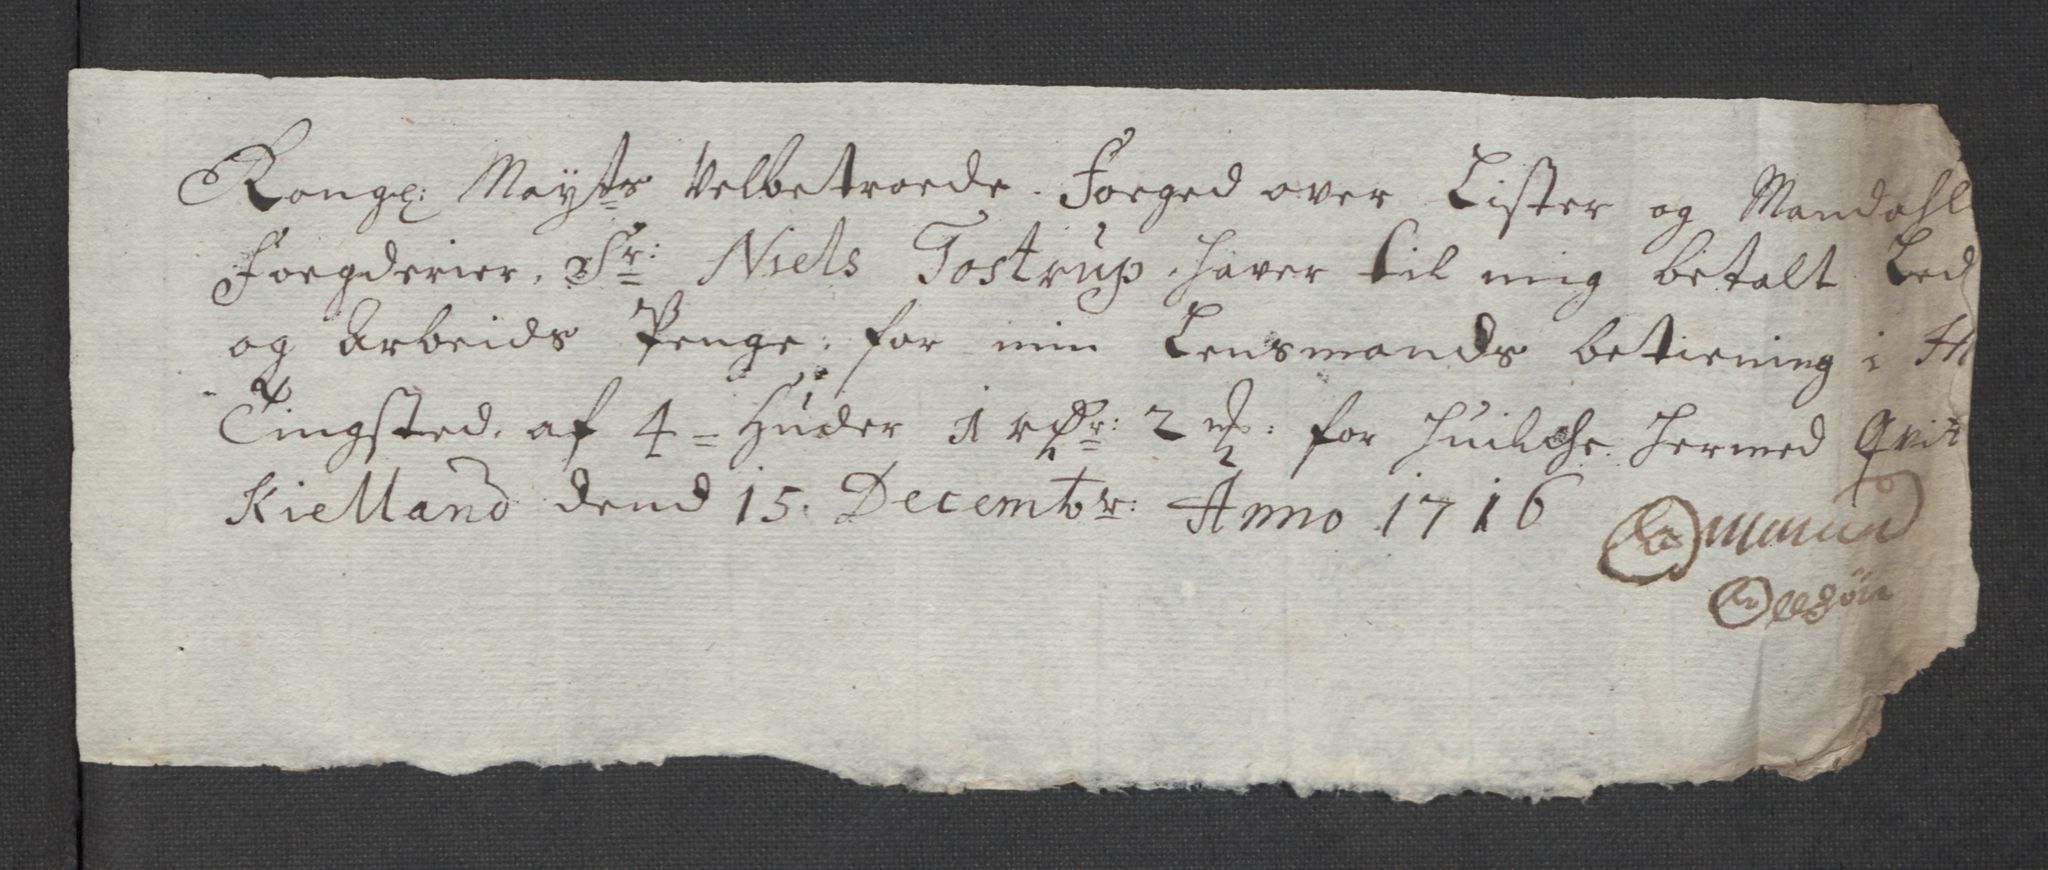 Kongl: Mayts Velbetroede. Foeged over Lister og Mandahls
Foegderier, Sr: Niels Tostrup, haver til mig betalt Led
og Arbeids Penge: for min Lensmands betiening i
Tingsted. af 4 = Huder 1 rdr: 2 mk: for huilche hermed Qvit
Kielland dend 15. Decembr: Anno 1716